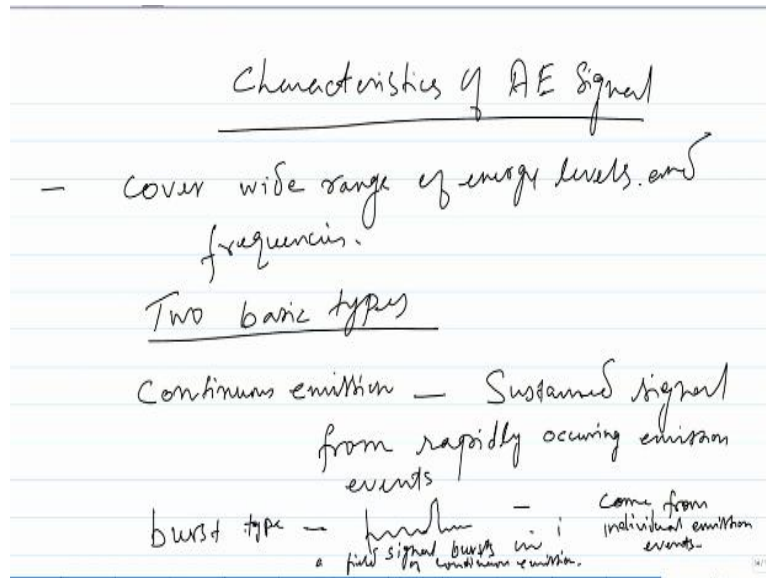 Characteristics of AE Signal
- cover wide range of energy levels and
frequencies.
Two basic types
Continuous emission - Sustained signal
from rapidly occuring emission
events
burst type - - come from
individual emission
events.
signal bursts in
continuous emission.